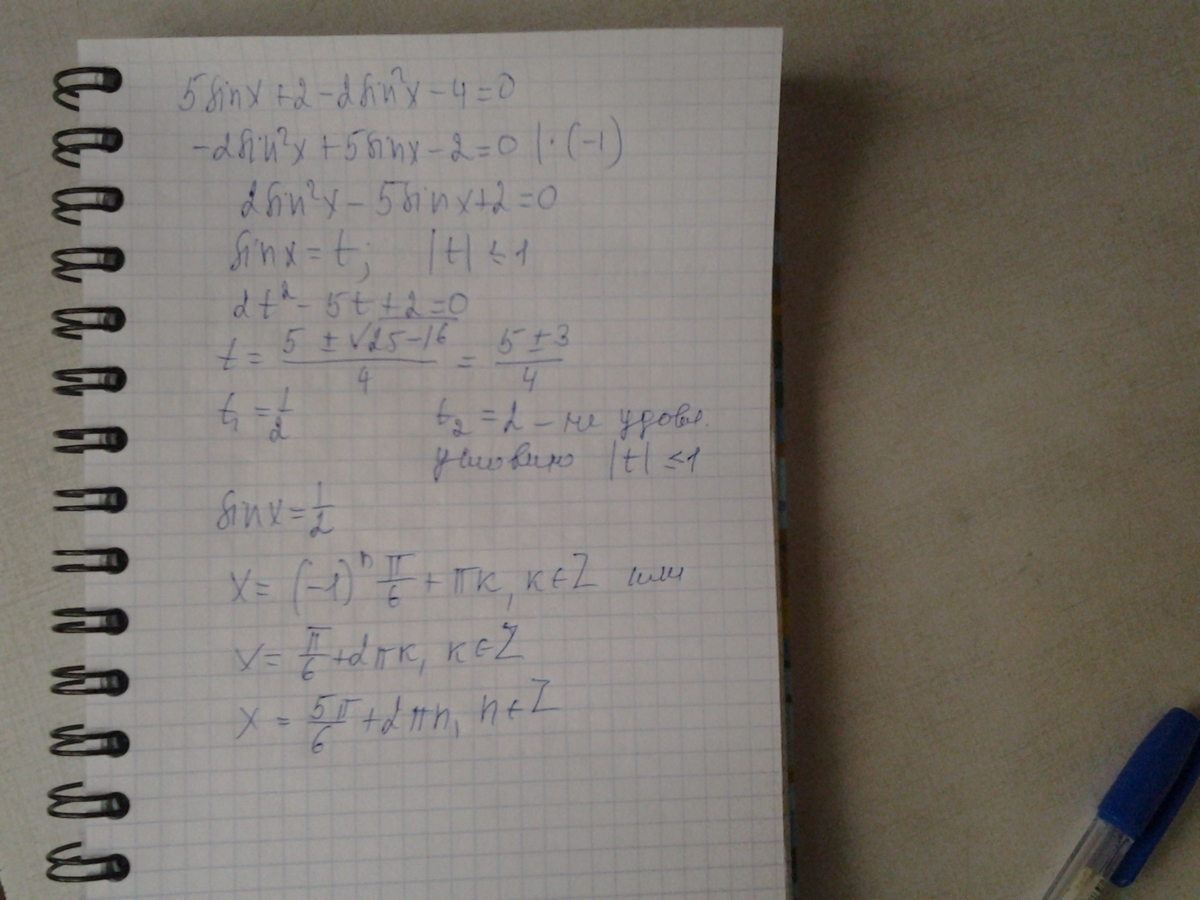 5sinx+2-2sin²x-4=0
-2sin²x+5sinx-2=0 |·(-1)
2sin²x-5sinx+2=0
sinx=t; |t|≤1
2t²-5t+2=0
t= (5±√25-16)/4 = (5±3)/4
t₁=1/2 t₂=2 - не удовл.
условию |t|≤1
sinx=1/2
x= (-1)ⁿ π/6 + πк, к∈Z или
x= π/6+2πк, к∈Z
x= 5π/6+2πn, n∈Z